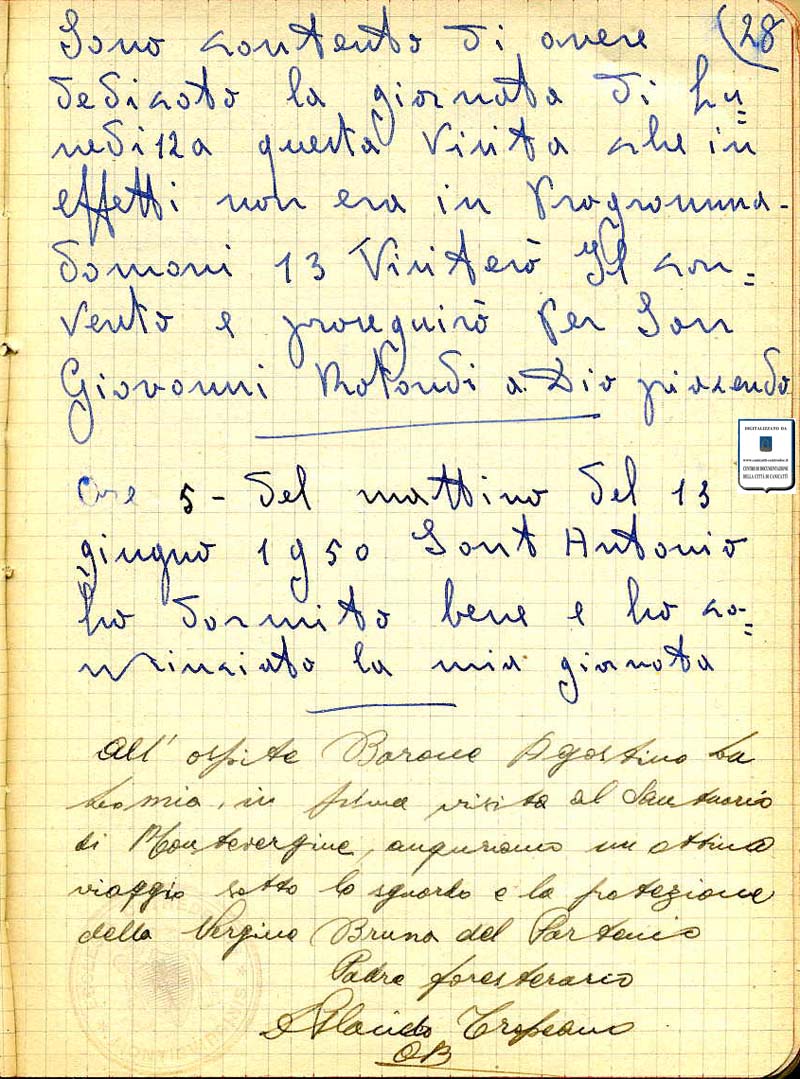 (28
Sono contento di avere
dedicato la giornata di Lu=
nedi 12 a questa visita che in
effetti non era in Programma-
domani 13 Visiterò Il con=
vento e proseguirò Per San
Giovanni Rotondi a Dio piacendo
DIGITALIZZATO DA
www.canicatti-centrodoc.it
CENTRO DI DOCUMENTAZIONE
DELLA CITTÀ DI CANICATTÌ
Ore 5 - del mattino del 13
giugno 1950 Sant Antonio
ho dormito bene e ho co=
minciato la mia giornata
All' ospite Barone Agostino La
Lomia, in prima visita al Santuario
di Montevergine, auguriamo un ottimo
viaggio sotto lo sguardo e la protezione
della Vergine Bruna del Partenio
Padre foresterario
D. Placido Tropeano
OSB